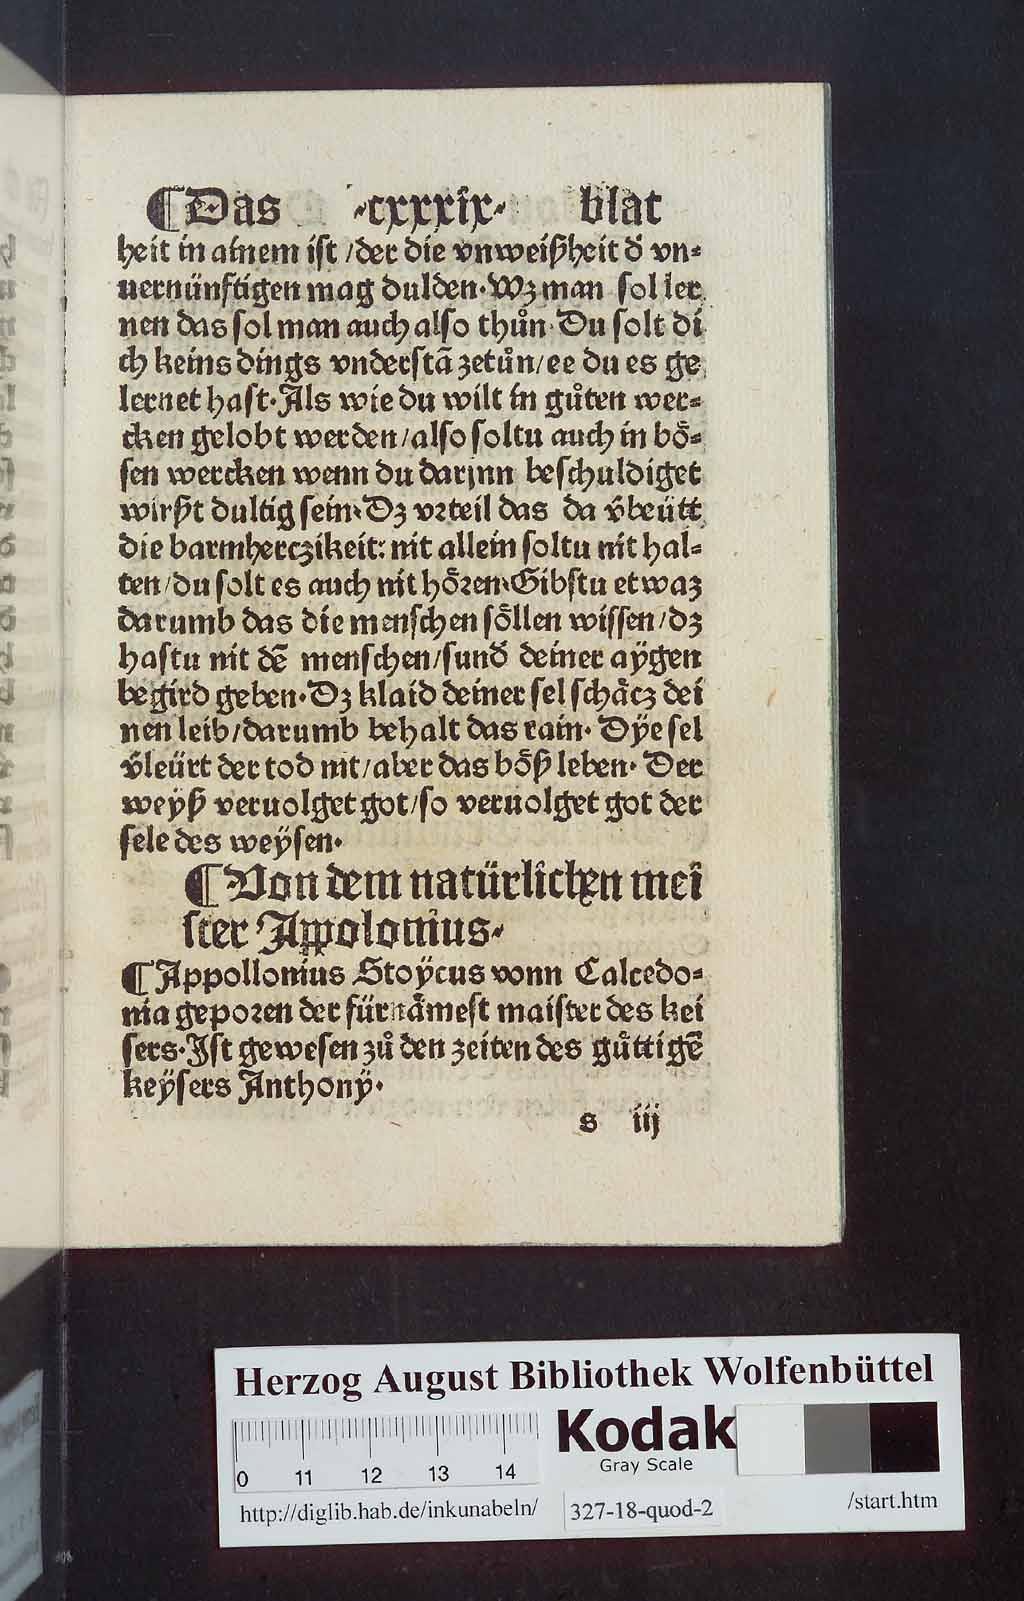 ¶ Das ·cxxxix· blat
heit in ainem ist /der die vnweißheit d̕ vn-
uernünftigen mag dulden· Wz man sol ler
nen das sol man auch also thůn· Du solt di
ch keins dings vnderstā zetůn/ee du es ge
lernet hast· Als wie du wilt in gůten wer-
cken gelobt werden/also soltu auch in bö-
sen wercken wenn du darjnn beschuldiget
wirßt dultig sein· Dz vrteil das da v̕beütt
die barmherczikeit: nit allein soltu nit hal-
ten/du solt es auch nit hören· Gibstu etwaz
darumb das die menschen söllen wissen/dz
hastu nit dē menschen/sund̕ deiner aÿgen
begird geben· Dz klaid deiner sel schäcz dei
nen leib/darumb behalt das rain· Dÿe sel
v̕leürt der tod nit/aber das böß leben· Der
weÿß veruolget got/so veruolget got der
sele des weÿsen·
¶ Von dem natürlichen mei
ster Appolonius·
¶ Appollonius Stoÿcus vonn Calcedo-
nia geporen der fürnämest maister des kei
sers· Ist gewesen zů den zeiten des gůttigē
keÿsers Anthonÿ·
s iij
Herzog August Bibliothek Wolfenbüttel
0 11 12 13 14
Kodak
Gray Scale
http://diglib.hab.de/inkunabeln/ 327-18-quod-2 /start.htm